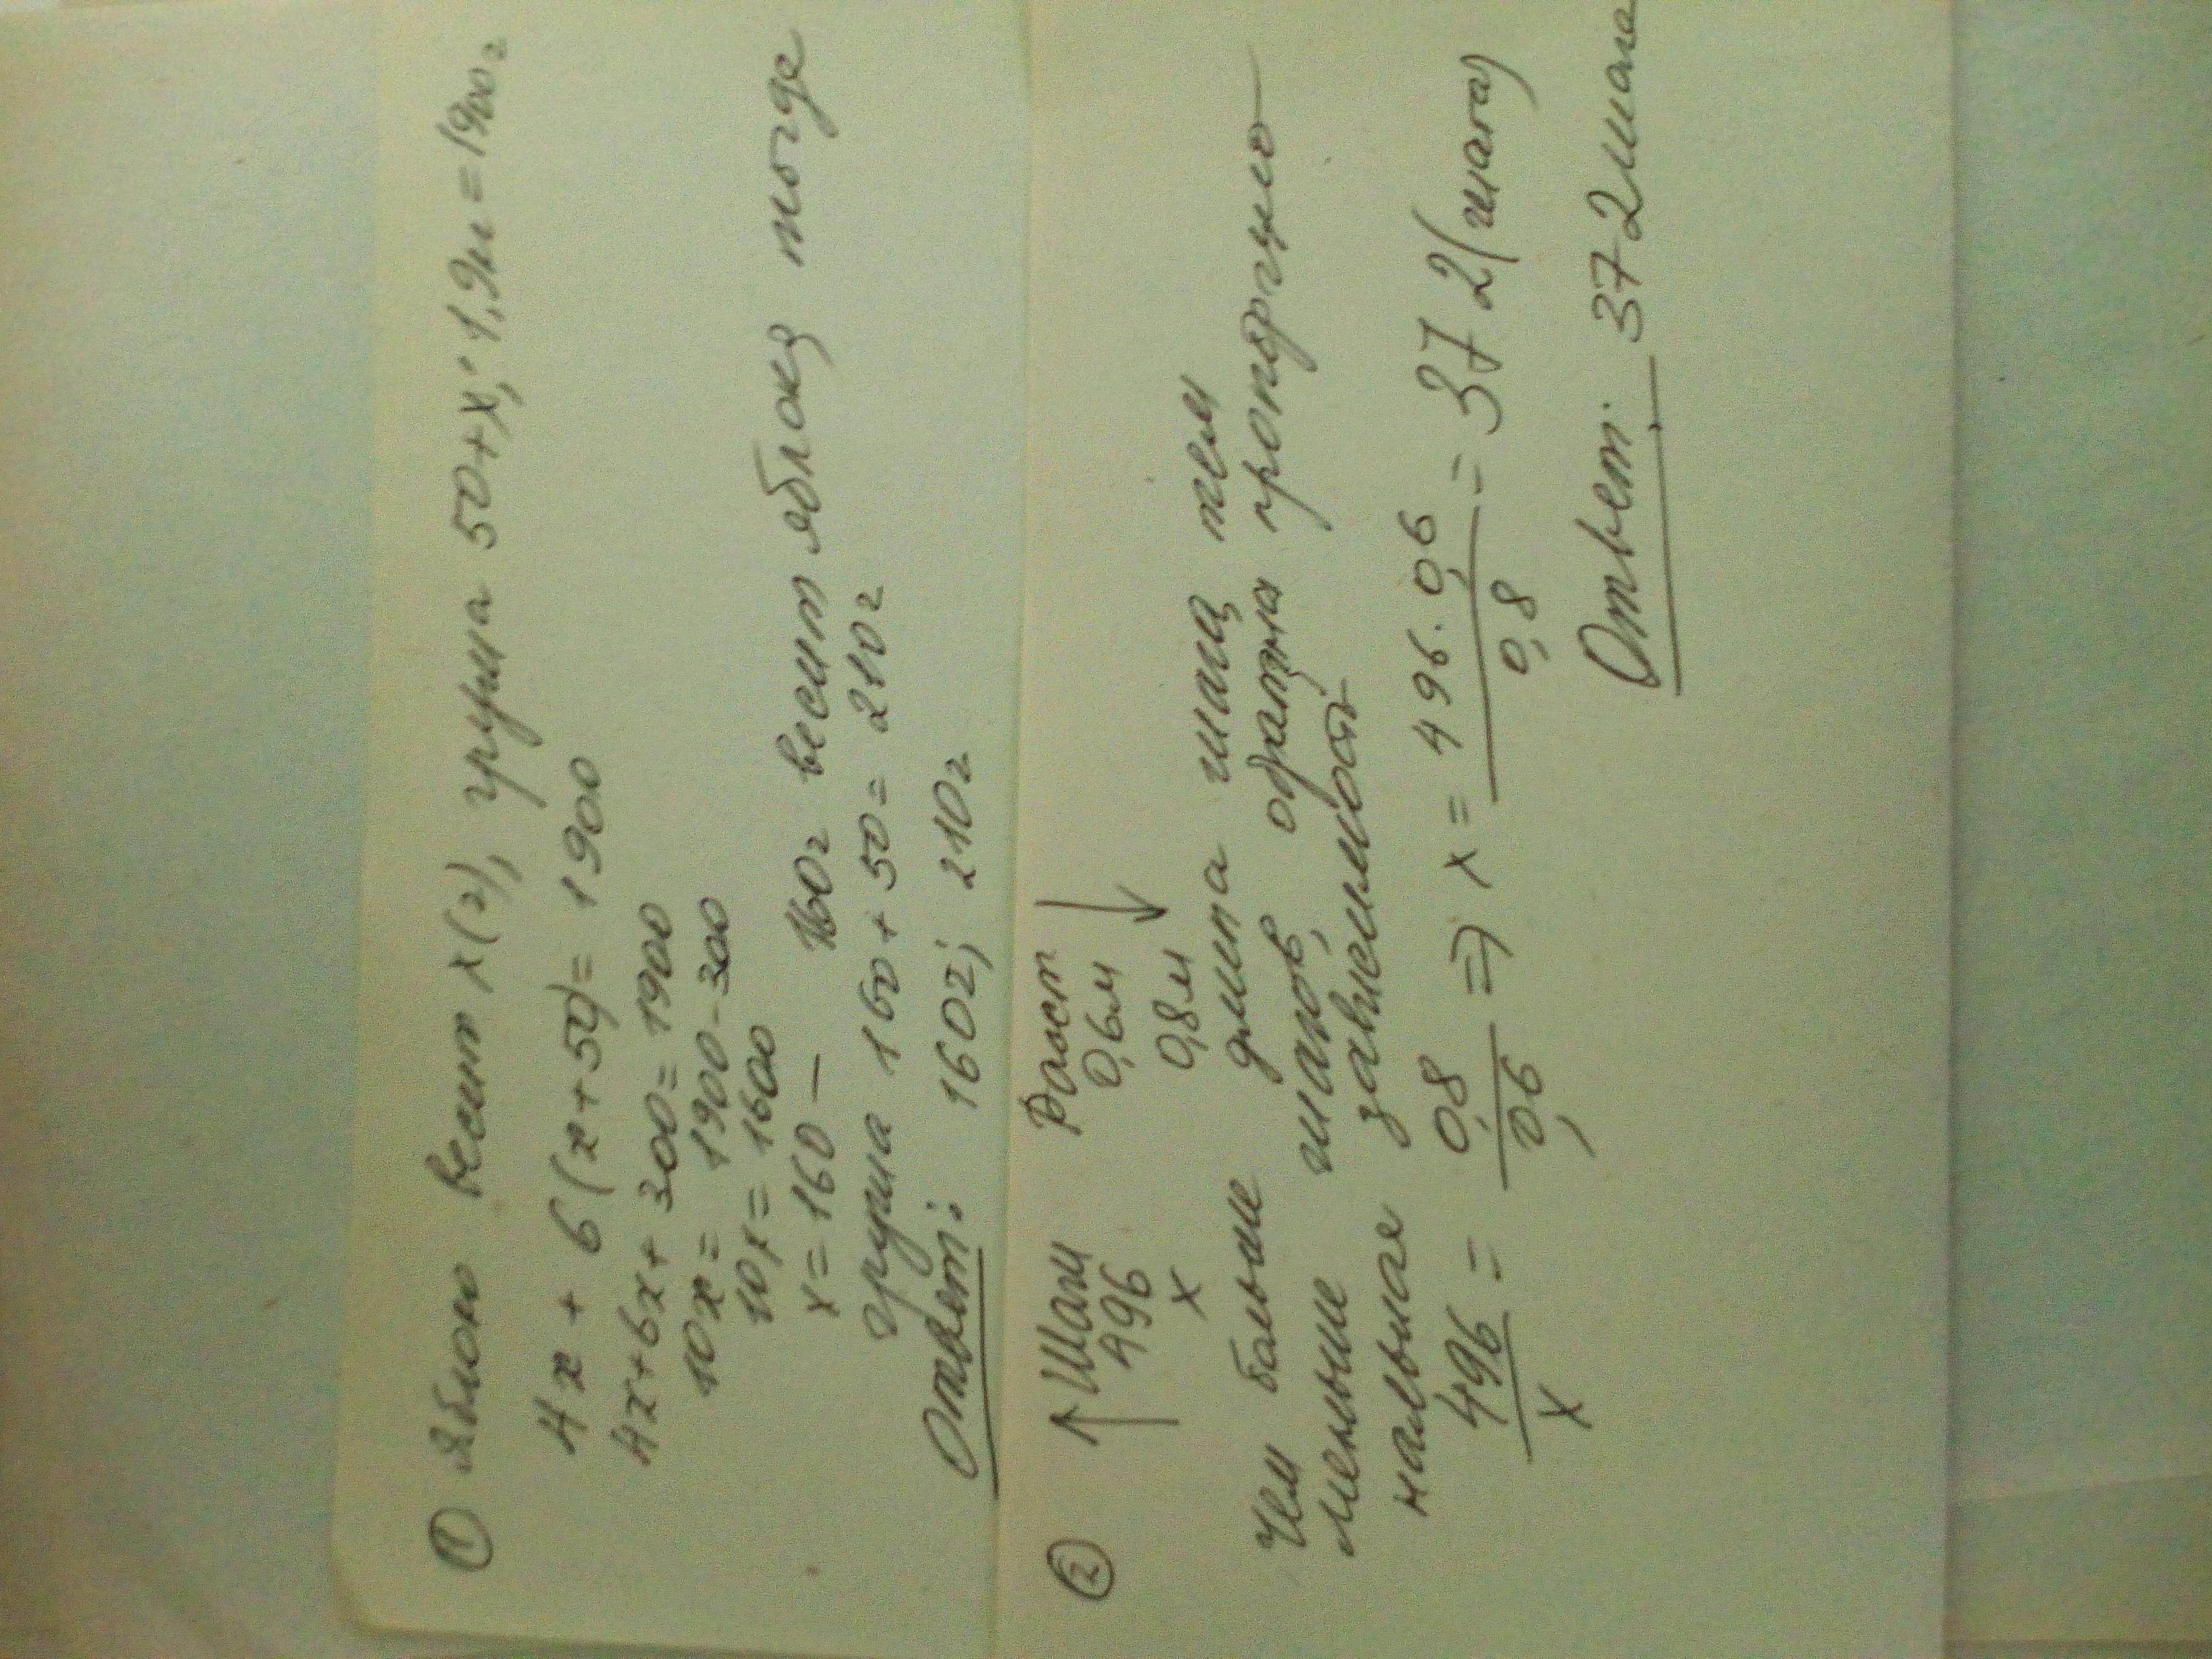 ① Яблоко весит x(г), груша 50+x; 1,9кг=1900г
4x + 6(x+50)= 1900
4x+6x+ 300= 1900
10x= 1900-300
10x= 1600
x= 160 — 160г весит яблоко, тогда
груша 160+50= 210г
Ответ: 160г; 210г
② Шаги Рост
496 0,6м
x 0,8м
Чем больше длина шага, тем
меньше шагов, обратная пропорцио-
нальная зависимость
496/x = 0,8/0,6 => x= 496·0,6/0,8 = 372(шага)
Ответ: 372шага